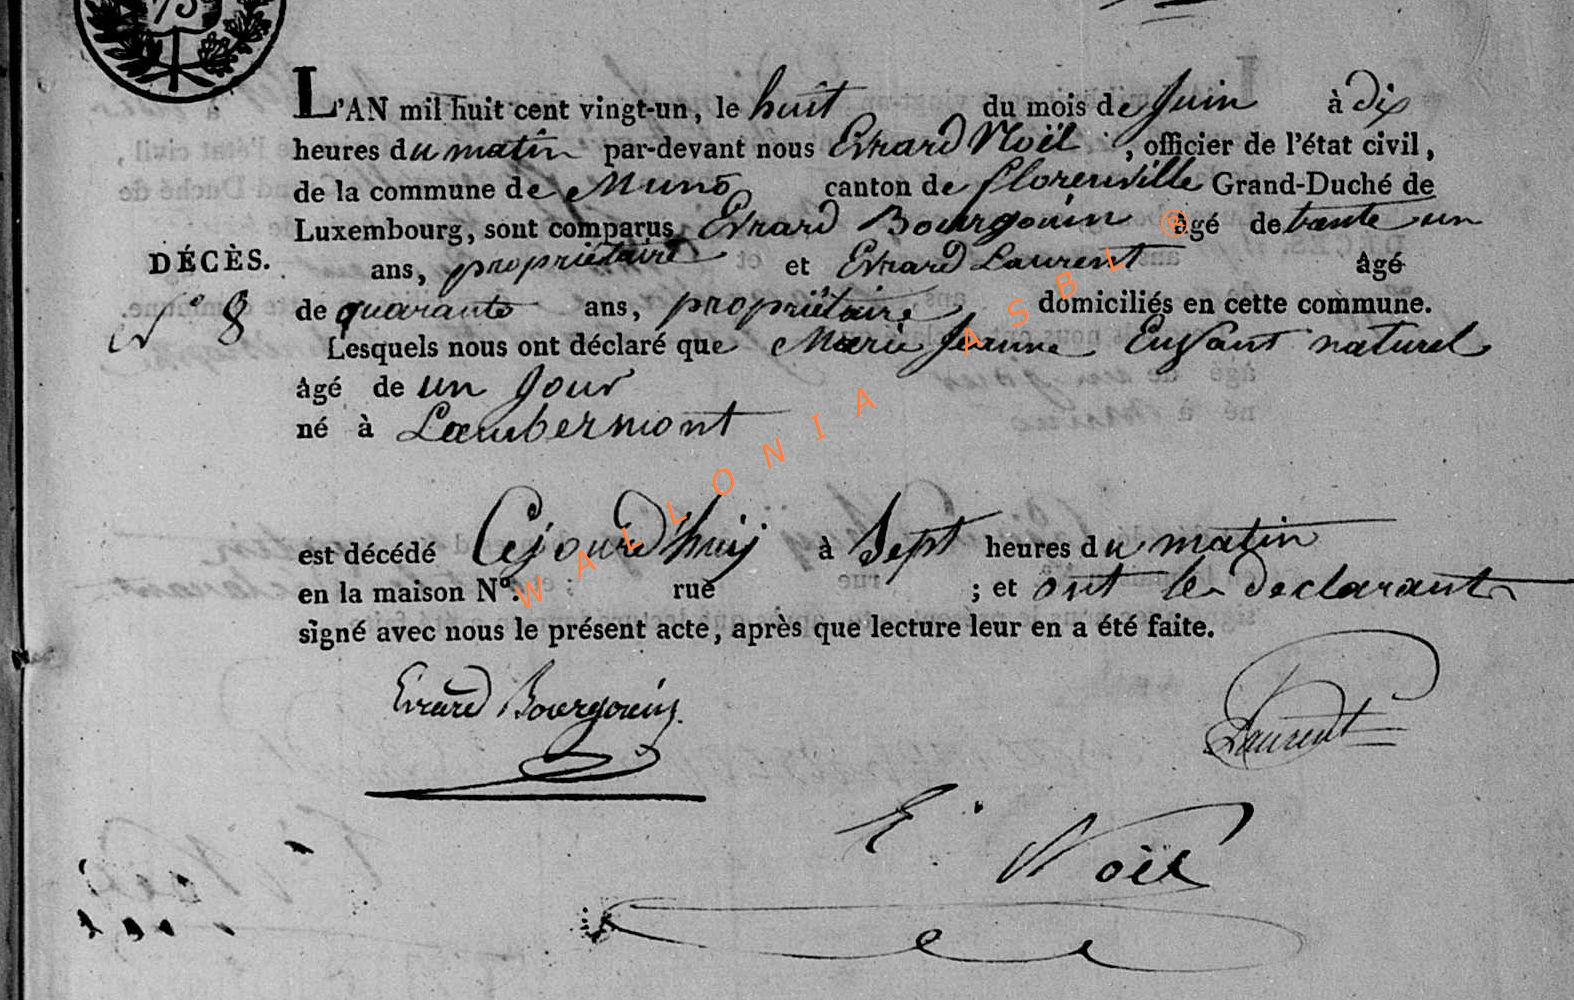 75
L'AN mil huit cent vingt-un, le huit du mois de Juin à dix
heures du matin par-devant nous Evrard Noël, officier de l'état civil,
de la commune de Muno canton de florenville Grand-Duché de
Luxembourg, sont comparus Evrard Bourgouin âgé de trante un
DÉCÈS. ans, propriétaire et Evrard Laurent âgé
N° 8 de quarante ans, propriétaire domiciliés en cette commune.
Lesquels nous ont déclaré que Marie Jeanne Enfant naturel
âgé de un Jour
né à Lambermont
est décédé Cejourd'huij à Sept heures du matin
en la maison N°. rue ; et ont les declarants
signé avec nous le présent acte, après que lecture leur en a été faite.
Evrard Bourgouin
Laurent
E. Noël
WALLONIA ASBL ®